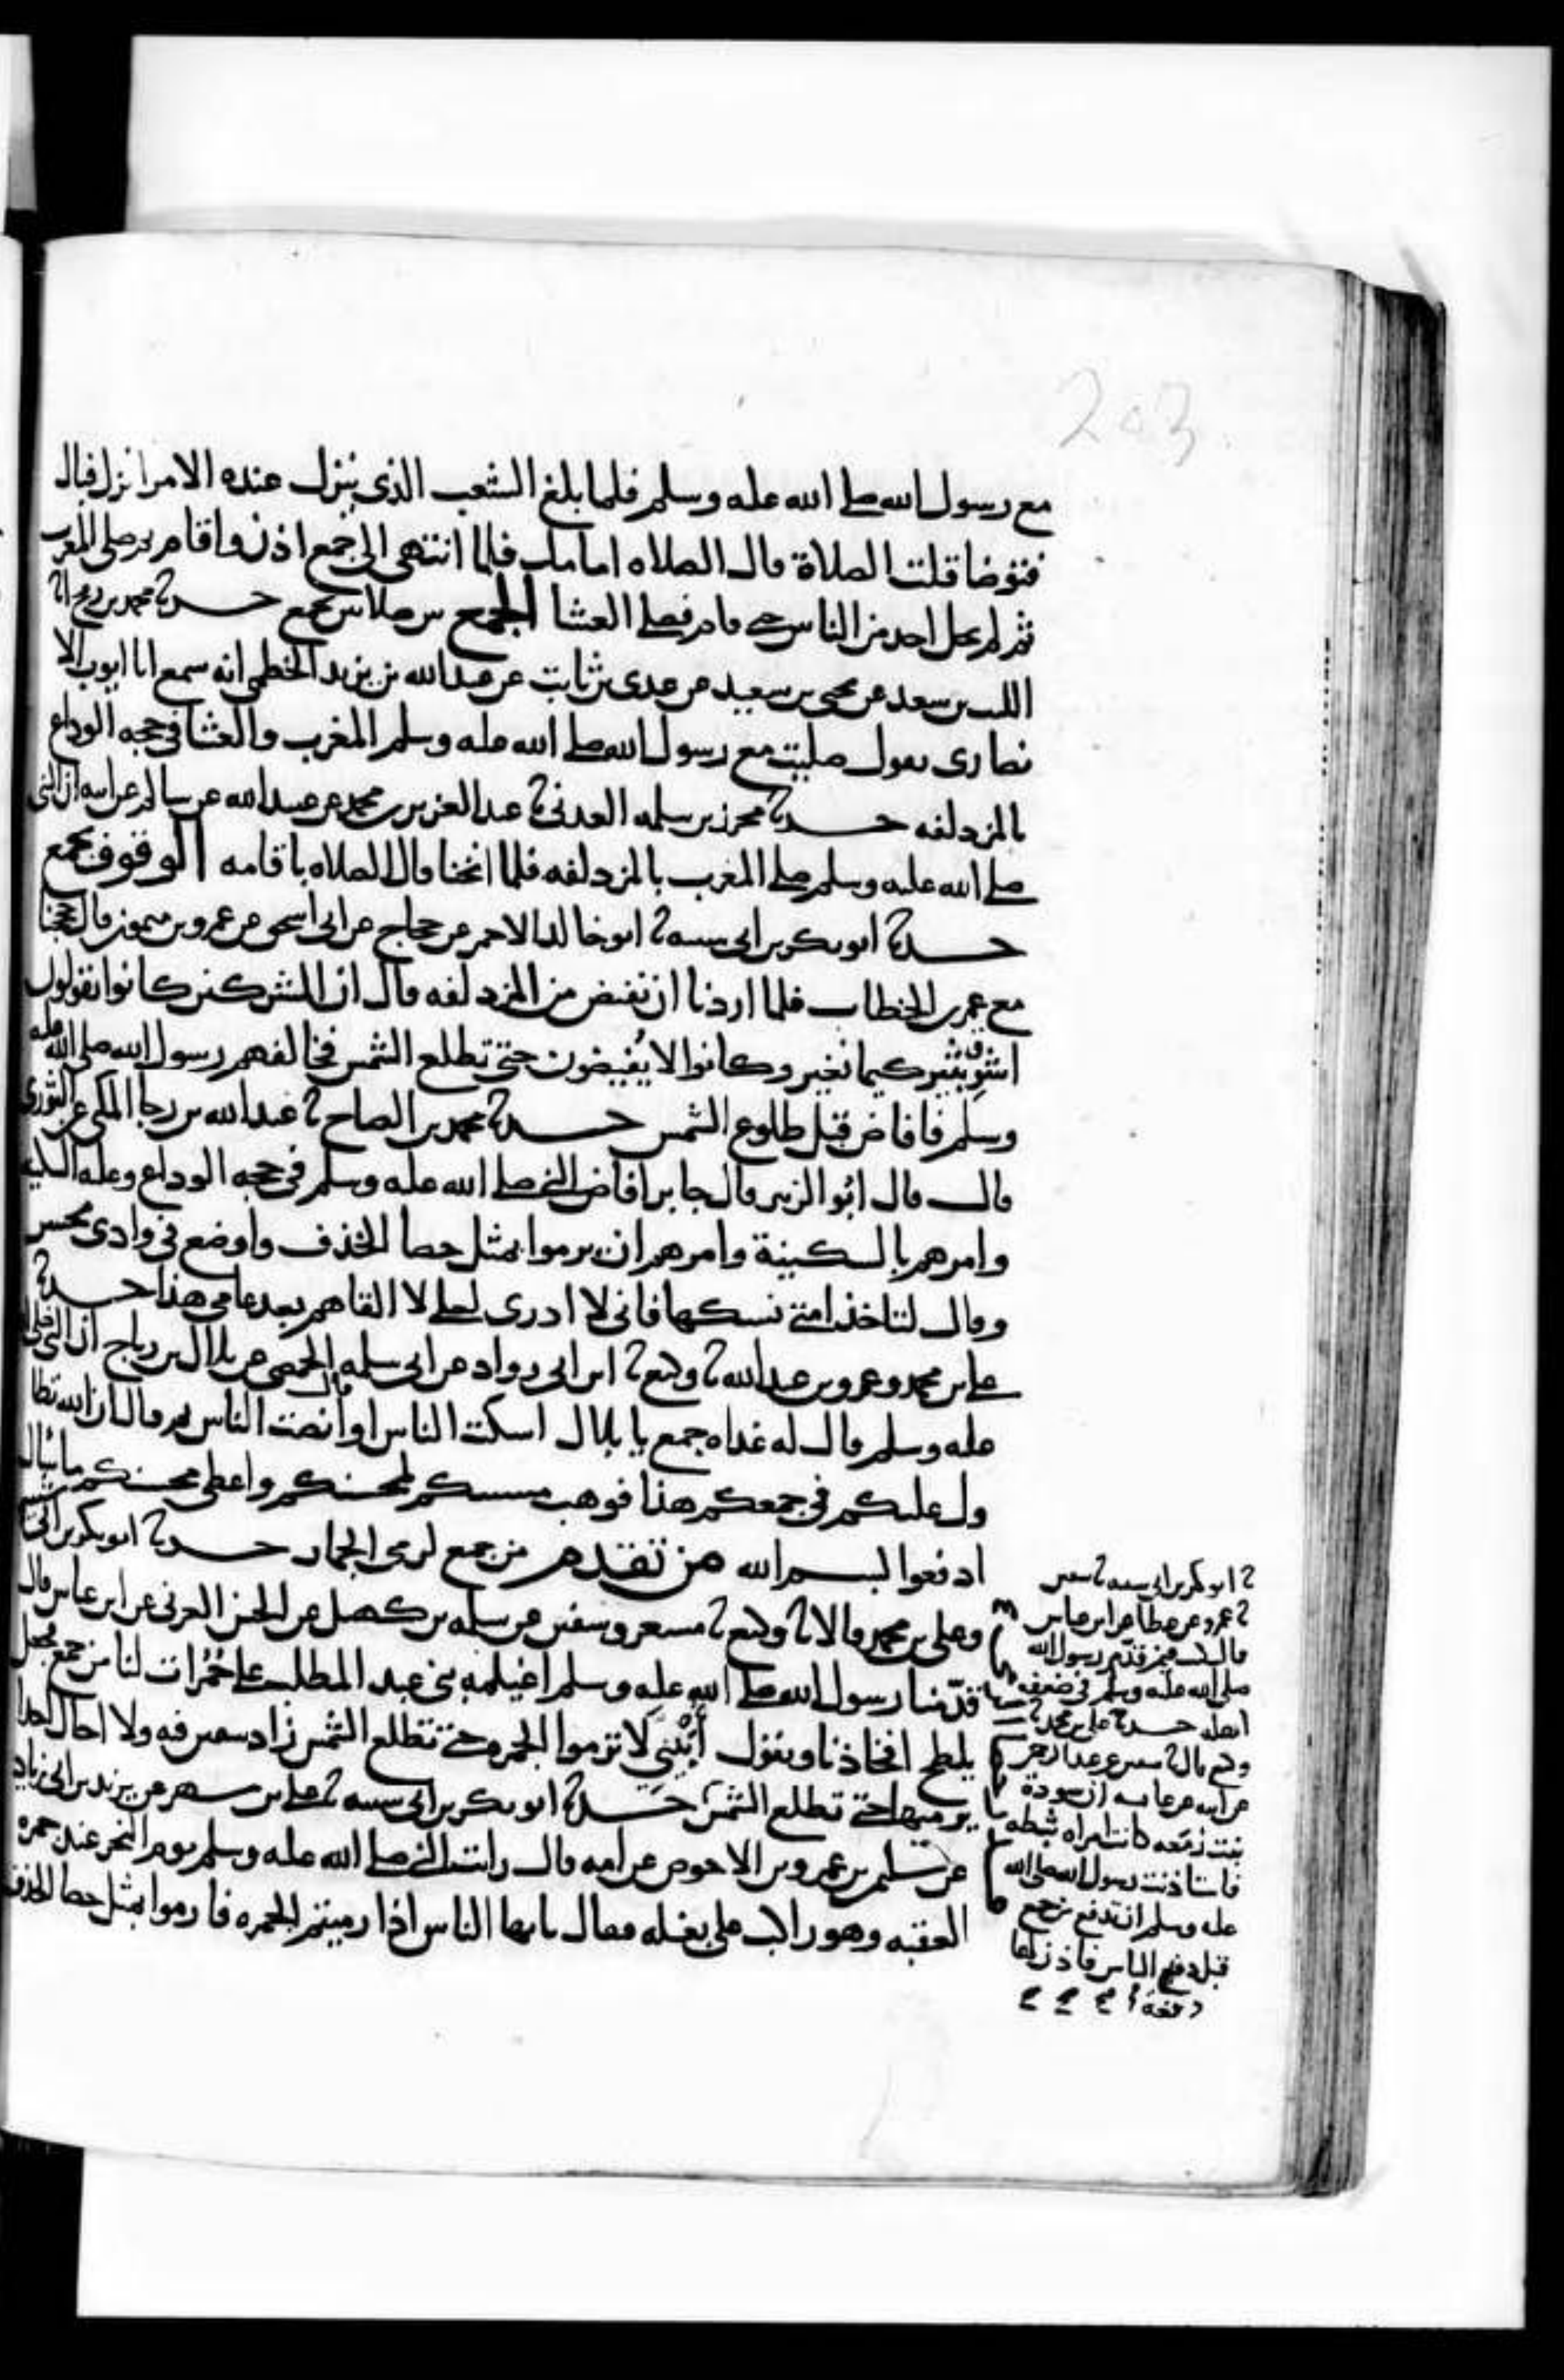 203
مع رسول الله صلى الله عليه وسلم فلما بلغ الشعب الذي ينزل عنده الامرا نزل فبال
فتوضا قلت الصلاة قال الصلاه امامك فلما انتهى الى جمع اذن واقام ثم صلى المغرب
ثم لم يحل احد من الناس حتى قام فصلى العشا الجمع بين صلاتين بجمع حدثنا محمد بن رمح انا
الليث بن سعد عن يحيى بن سعيد عن عدي بن ثابت عن عبد الله بن يزيد الخطمي انه سمع ابا ايوب الا
نصارى يقول صليت مع رسول الله صلى الله عليه وسلم المغرب والعشا في حجه الوداع
بالمزدلفه حدثنا محرز بن سلمه العدني ثنا عبد العزيز بن محمد عن عبيد الله عن سالم عن ابيه ان النبي
صلى الله عليه وسلم صلى المغرب بالمزدلفه فلما انخنا قال الصلاه باقامه الوقوف بجمع
حدثنا ابو بكر بن ابي شيبه ثنا ابو خالد الاحمر عن حجاج عن ابي اسحق عن عمرو بن ميمون قال حججنا
مع عمر بن الخطاب فلما اردنا ان نفيض من المزدلفه قال ان المشركين كانوا يقولون
اشرق ثبير كيما نغير وكانوا لا يفيضون حتى تطلع الشمس فخالفهم رسول الله صلى الله عليه
وسلم فافاض قبل طلوع الشمس حدثنا محمد بن الصباح ثنا عبد الله بن رجا المكي عن الثوري
قال قال ابو الزبير قال جابر افاض النبي صلى الله عليه وسلم في حجه الوداع وعليه السكينه
وامرهم بالسكينة وامرهم ان يرموا بمثل حصا الخذف واوضع في وادي محسر
وقال لتاخذ امتي نسكها فاني لا ادري لعلي لا القاهم بعد عامي هذا حدثنا
علي بن محمد وعمرو بن عبد الله ثنا وكيع ثنا ابن ابي رواد عن ابي سلمه الحمصي عن بلال بن رباح ان النبي صلى الله
عليه وسلم قال له غداه جمع يا بلال اسكت الناس او انصت الناس ثم قال ان الله تطا
ول عليكم في جمعكم هذا فوهب مسيئكم لمحسنكم واعطى محسنكم ما سال
ادفعوا لبسم الله من تقدم من جمع لرمي الجمار حدثنا ابو بكر بن ابي شيبه
وعلي بن محمد قالا ثنا وكيع ثنا مسعر وسفين عن سلمه بن كهيل عن الحسن العرني عن ابن عباس قال
قدّمنا رسول الله صلى الله عليه وسلم اغيلمه بني عبد المطلب على حُمُرات لنا من جمع فجعل
يلطح افخاذنا ويقول أُبَيْنِيّ لا ترموا الجمره حتى تطلع الشمس زاد سفين فيه ولا اخال احدا
يرميها حتى تطلع الشمس حدثنا ابو بكر بن ابي شيبه ثنا علي بن مسهر عن يزيد بن ابي زياد
عن سليمن بن عمرو بن الاحوص عن امه قال رايت النبي صلى الله عليه وسلم يوم النحر عند جمره
العقبه وهو راكب على بغله فقال يايها الناس اذا رميتم الجمره فارموا بمثل حصا الخذف
ثنا ابو بكر بن ابي شيبه ثنا سفين
ثنا عمرو عن عطا عن ابن عباس
قال كنت فيمن قدّم رسول الله
صلى الله عليه وسلم في ضعفه
اهله حدثنا علي بن محمد ثنا
وكيع قال ثنا سفين عن عبد الرحمن
عن ابيه عن عايشه ان سودة
بنت زمعه كانت امراه ثبطه
فاستاذنت رسول الله صلى الله
عليه وسلم ان تدفع من جمع
قبل دفع الناس فاذن لها